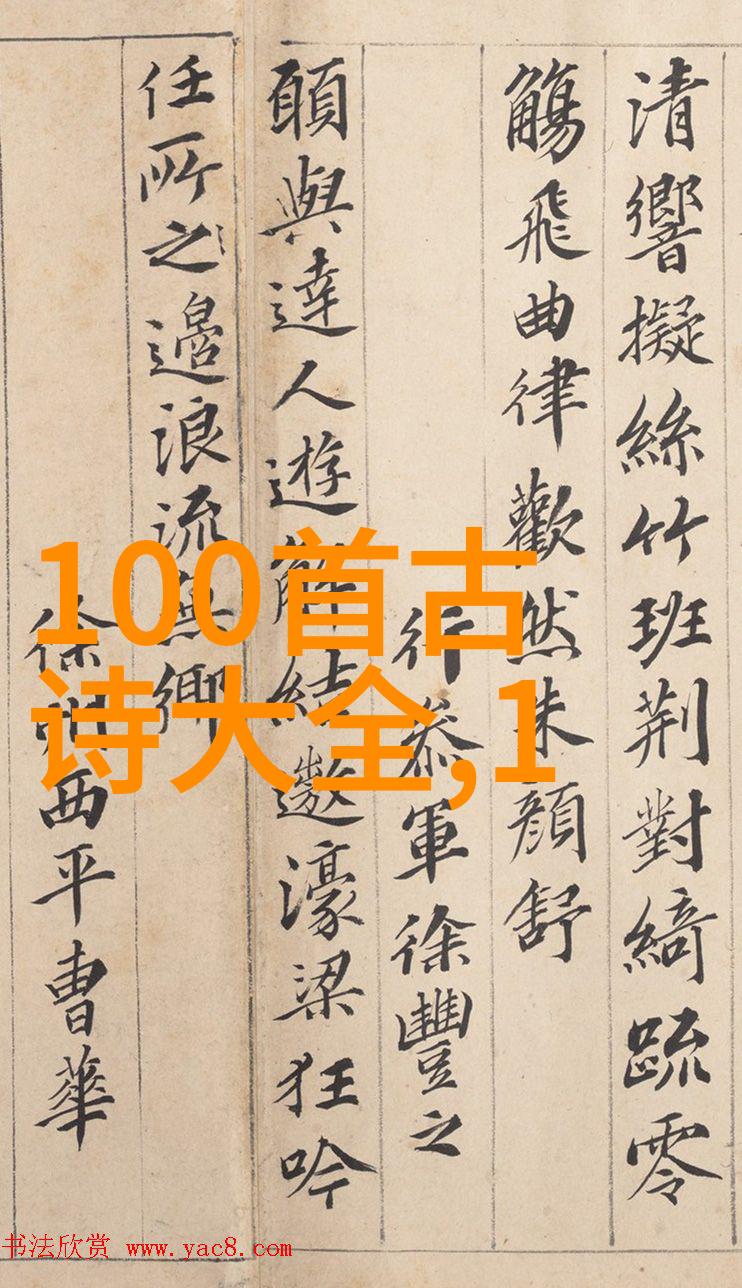 清響擬絲竹班荆對綺疏零
觴飛曲律歡然朱顏舒
行叅軍徐豐之
願與達人遊解結遨濠梁狂吟
任所之邉浪流無鄉
徐州西平曹華
100首古
诗大全,1
书法欣赏 www.yac8.com